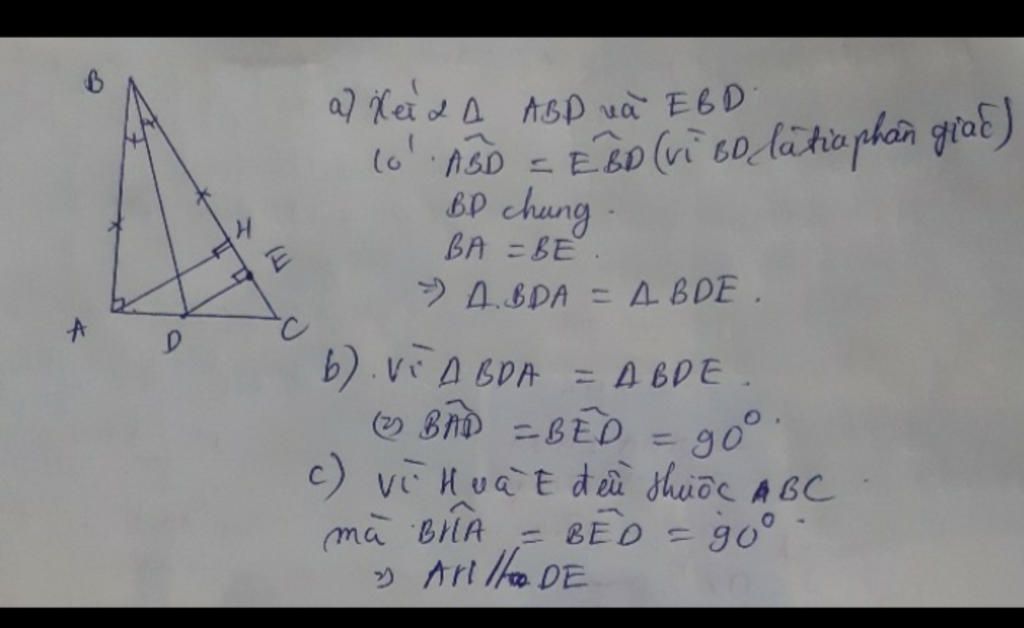 B
H
E
A
D
C
a) Xét 2 Δ ABD và EBD
Có: ABD̂ = EBD̂ (vì BD là tia phân giác)
BD chung.
BA = BE.
=> Δ.BDA = Δ BDE.
b). Vì Δ BDA = Δ BDE.
(=) BAD̂ = BED̂ = 90°.
c) Vì H và E đều thuộc ABC
mà BHÂ = BED̂ = 90°.
=> AH // DE